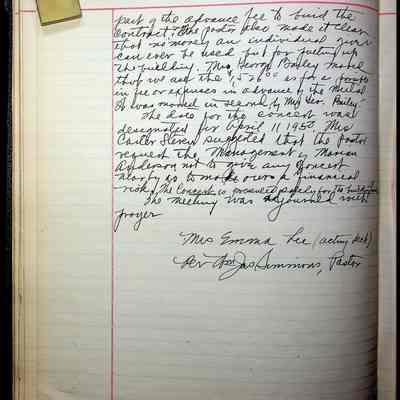 part of the advance fee to bind the
contract. The Pastor also made it clear
that no money an individual gives
can ever be used but for putting up
the building. Mrs. George Bailey moved
that we ask the
in fee or expenses in advance of the Recital
It was moved in second by Mrs. Geo. Bailey.
The date for the concert was
designated for April 11 1950 Mrs
Carter Stevens suggested that the Pastor
request the Management of Marian
Anderson not to give any concert
as to make ours a financial
risk. The Concert is presented solely for the building
The meeting was adjourned with
prayer
Mrs Emma Lee (acting sec)
Rev Wm Jas Simmons, Pastor